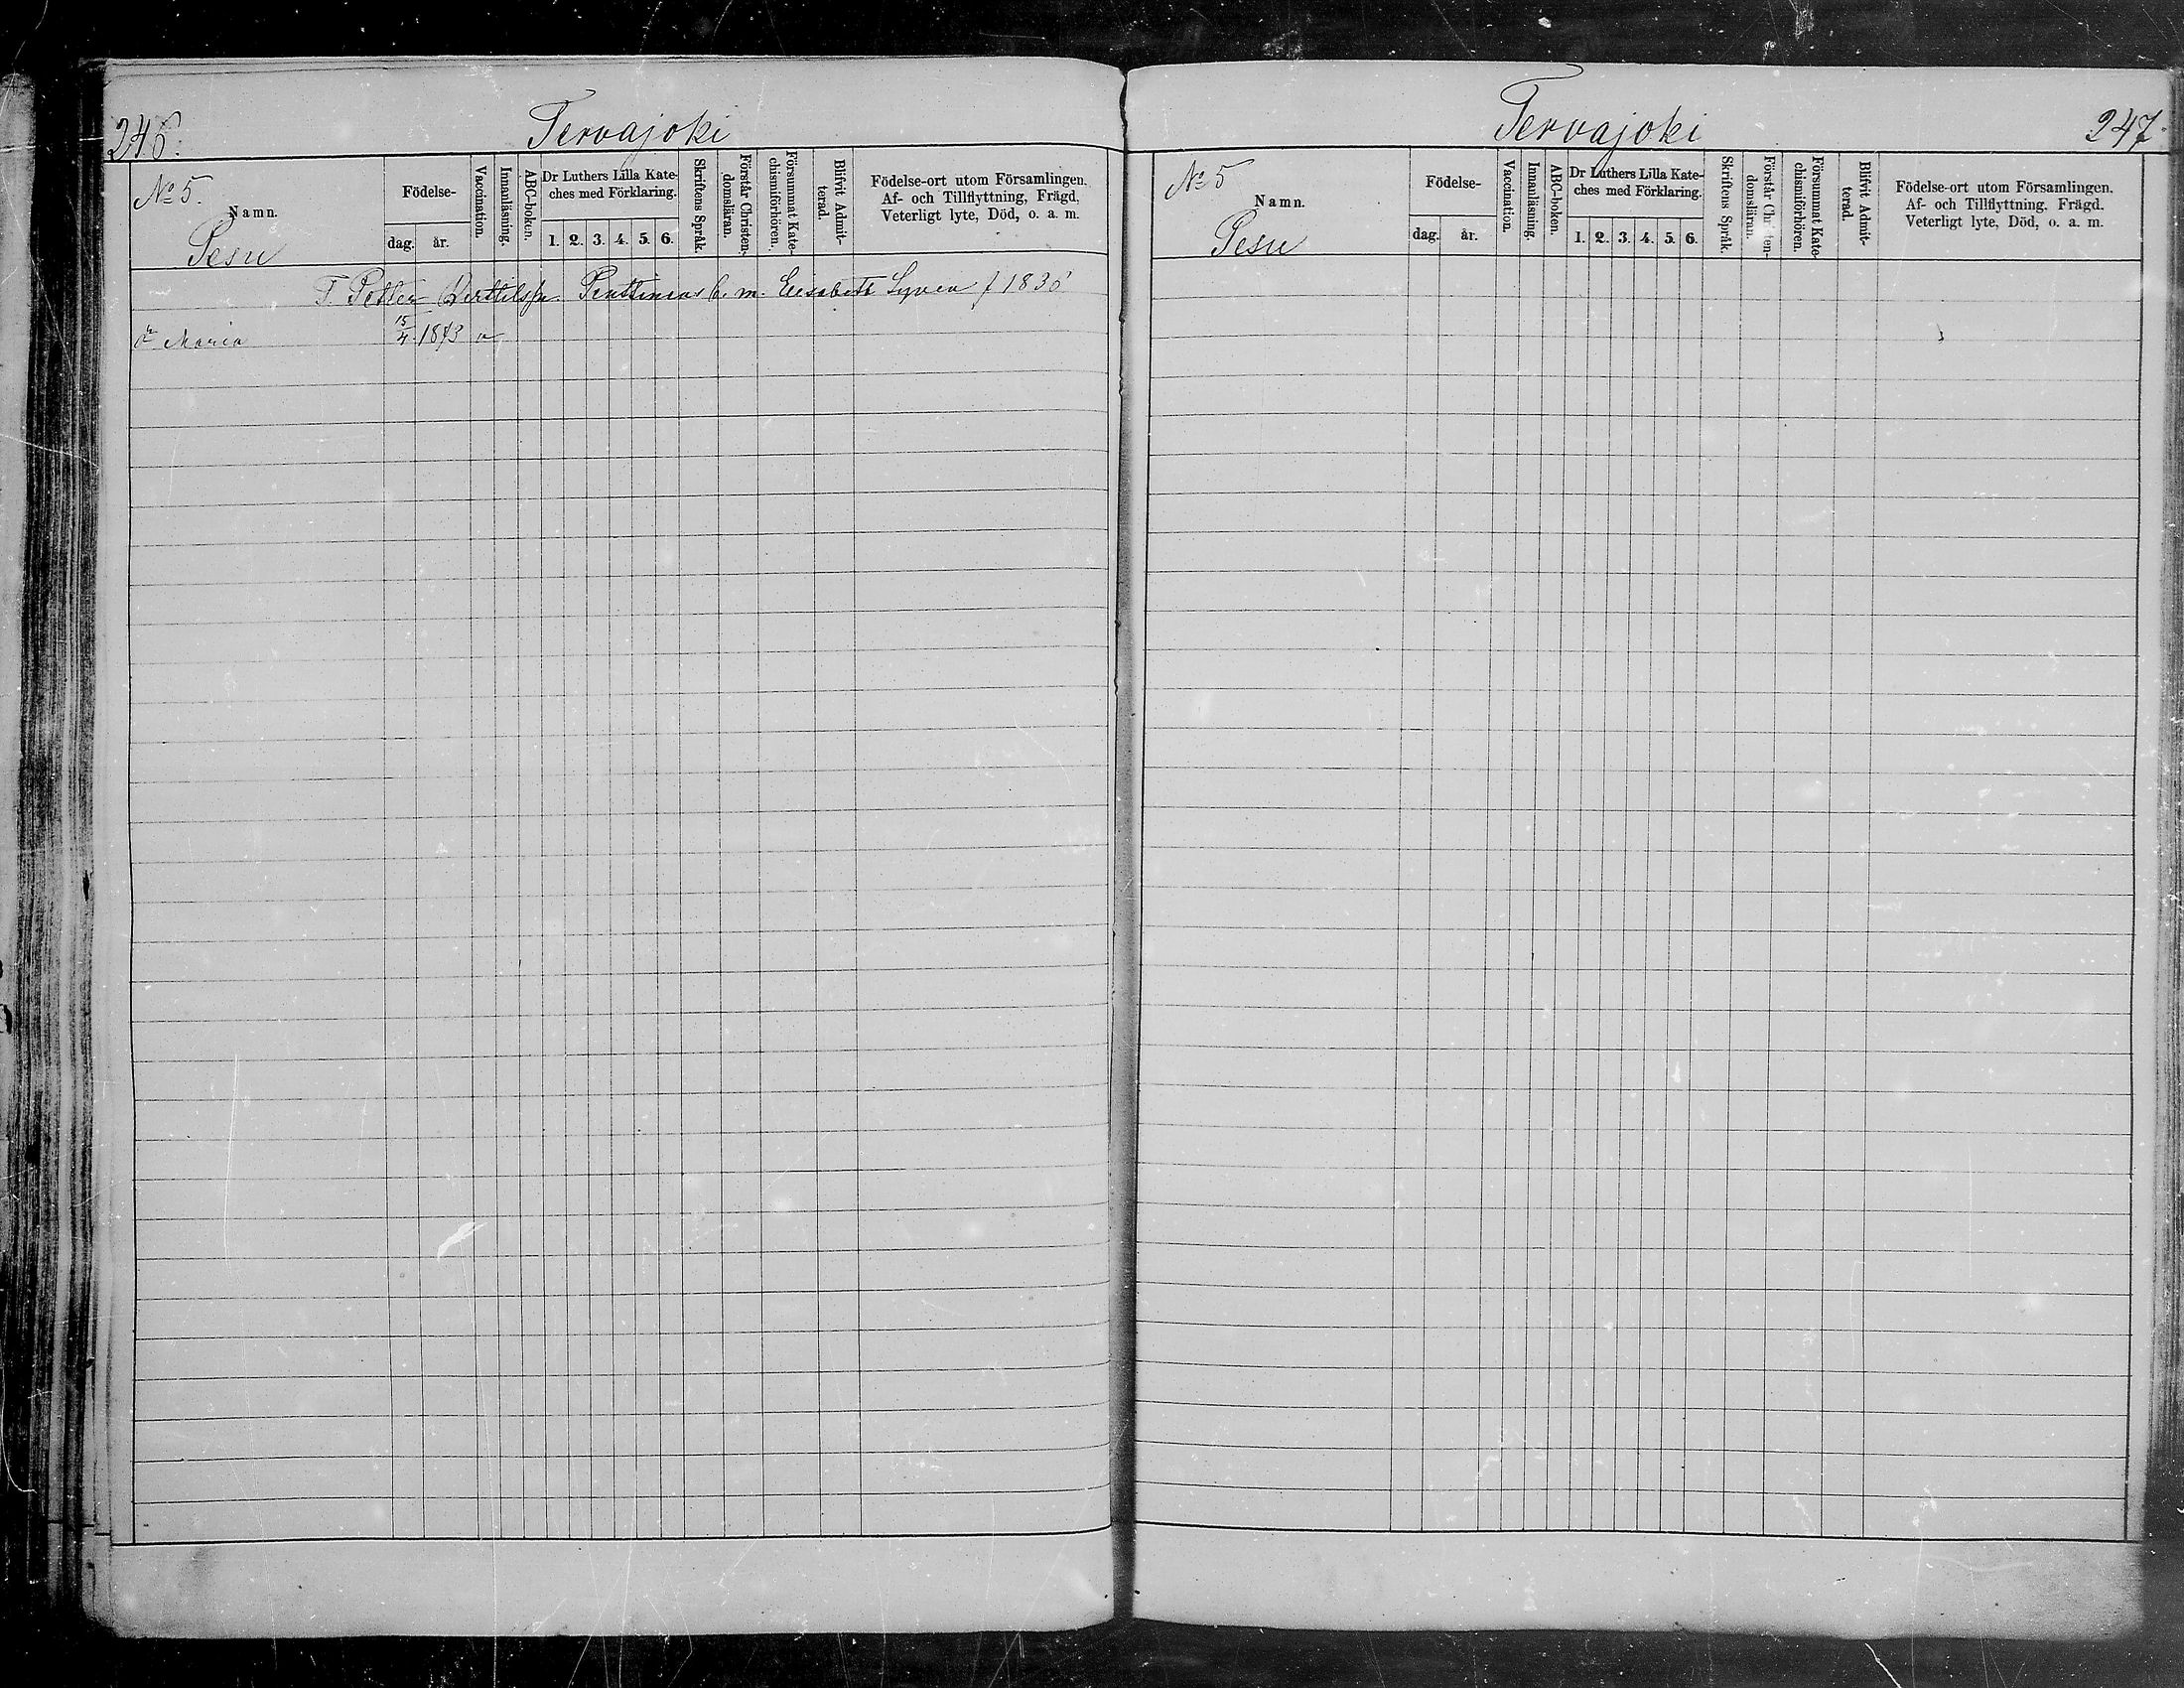 246.
Tervajoki
No 5.
Namn.
Pesu
Födelse-
dag. år.
Vaccination.
Innanläsning.
ABC-boken.
Dr Luthers Lilla Kate-
ches med Förklaring.
1. 2. 3. 4. 5. 6.
Skriftens Språk.
Förstår Christen-
domsläran.
Försummat Kate-
chismiförhören.
Blifvit Admit-
terad.
Födelse-ort utom Församlingen.
Af- och Tillflyttning, Frägd,
Veterligt lyte, Död, o. a. m.
F. Petter Berttilsson Penttinen m. Elisabeth f 1836
dr Maria 15/4 1873 v
Tervajoki
247.
No 5
Namn.
Pesu
Födelse-
dag. år.
Vaccination.
Innanläsning.
ABC-boken.
Dr Luthers Lilla Kate-
ches med Förklaring.
1. 2. 3. 4. 5. 6.
Skriftens Språk.
Förstår Christen-
domsläran.
Försummat Kate-
chismiförhören.
Blifvit Admit-
terad.
Födelse-ort utom Församlingen.
Af- och Tillflyttning, Frägd.
Veterligt lyte, Död, o. a. m.